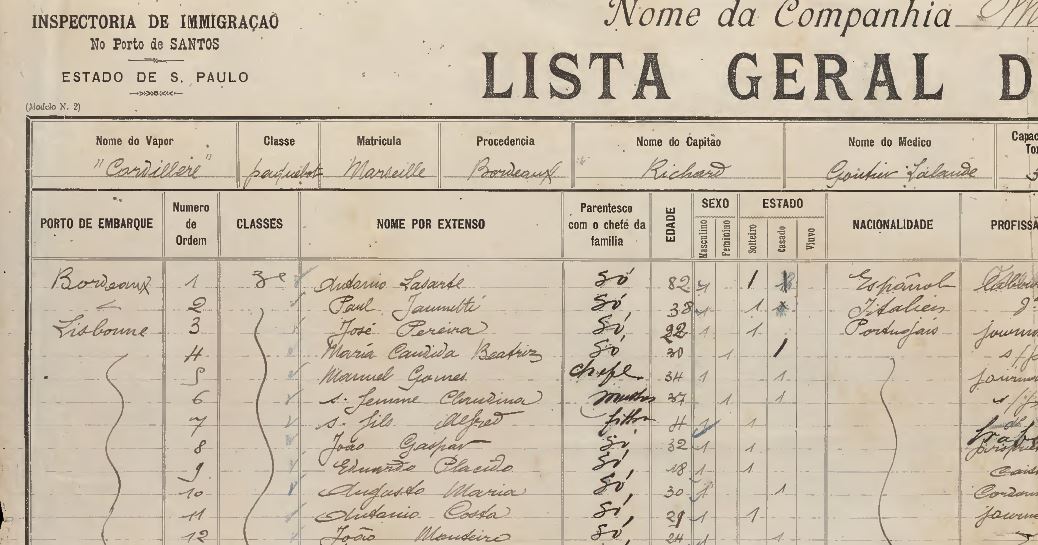 INSPECTORIA DE IMMIGRAÇAÕ
No Porto de SANTOS
ESTADO DE S. PAULO
(Modelo N. 2)
Nome da Companhia
LISTA GERAL D
Nome do Vapor Classe Matricula Procedencia Nome do Capitão Nome do Medico
"Cordillère" paquebot Marseille Bordeaux Richard Lalande
PORTO DE EMBARQUE Numero de Ordem CLASSES NOME POR EXTENSO Parentesco com o chefe da familia EDADE SEXO Masculino Feminino ESTADO Solteiro Casado Viuvo NACIONALIDADE PROFISSÃ
Bordeaux 1 3e Antonio Lasarte Só 82 1 1 Español
2 Paul Jannetti Só 38 1 1 Italien
Lisbonne 3 José Pereira Só 22 1 1 Portugais
4 Maria Candida Beatriz Só 30 1 1
5 Manuel Gomes chefe 34 1 1
6 s. femme Claudina 37 1 1
7 s. fils Alfred 4 1 1
8 João Gaspar Só 32 1 1
9 Eduardo Placido Só 18 1 1
10 Augusto Maria Só 30 1 1
11 Antonio Costa Só 29 1 1
12 João Monteiro Só 24 1 1